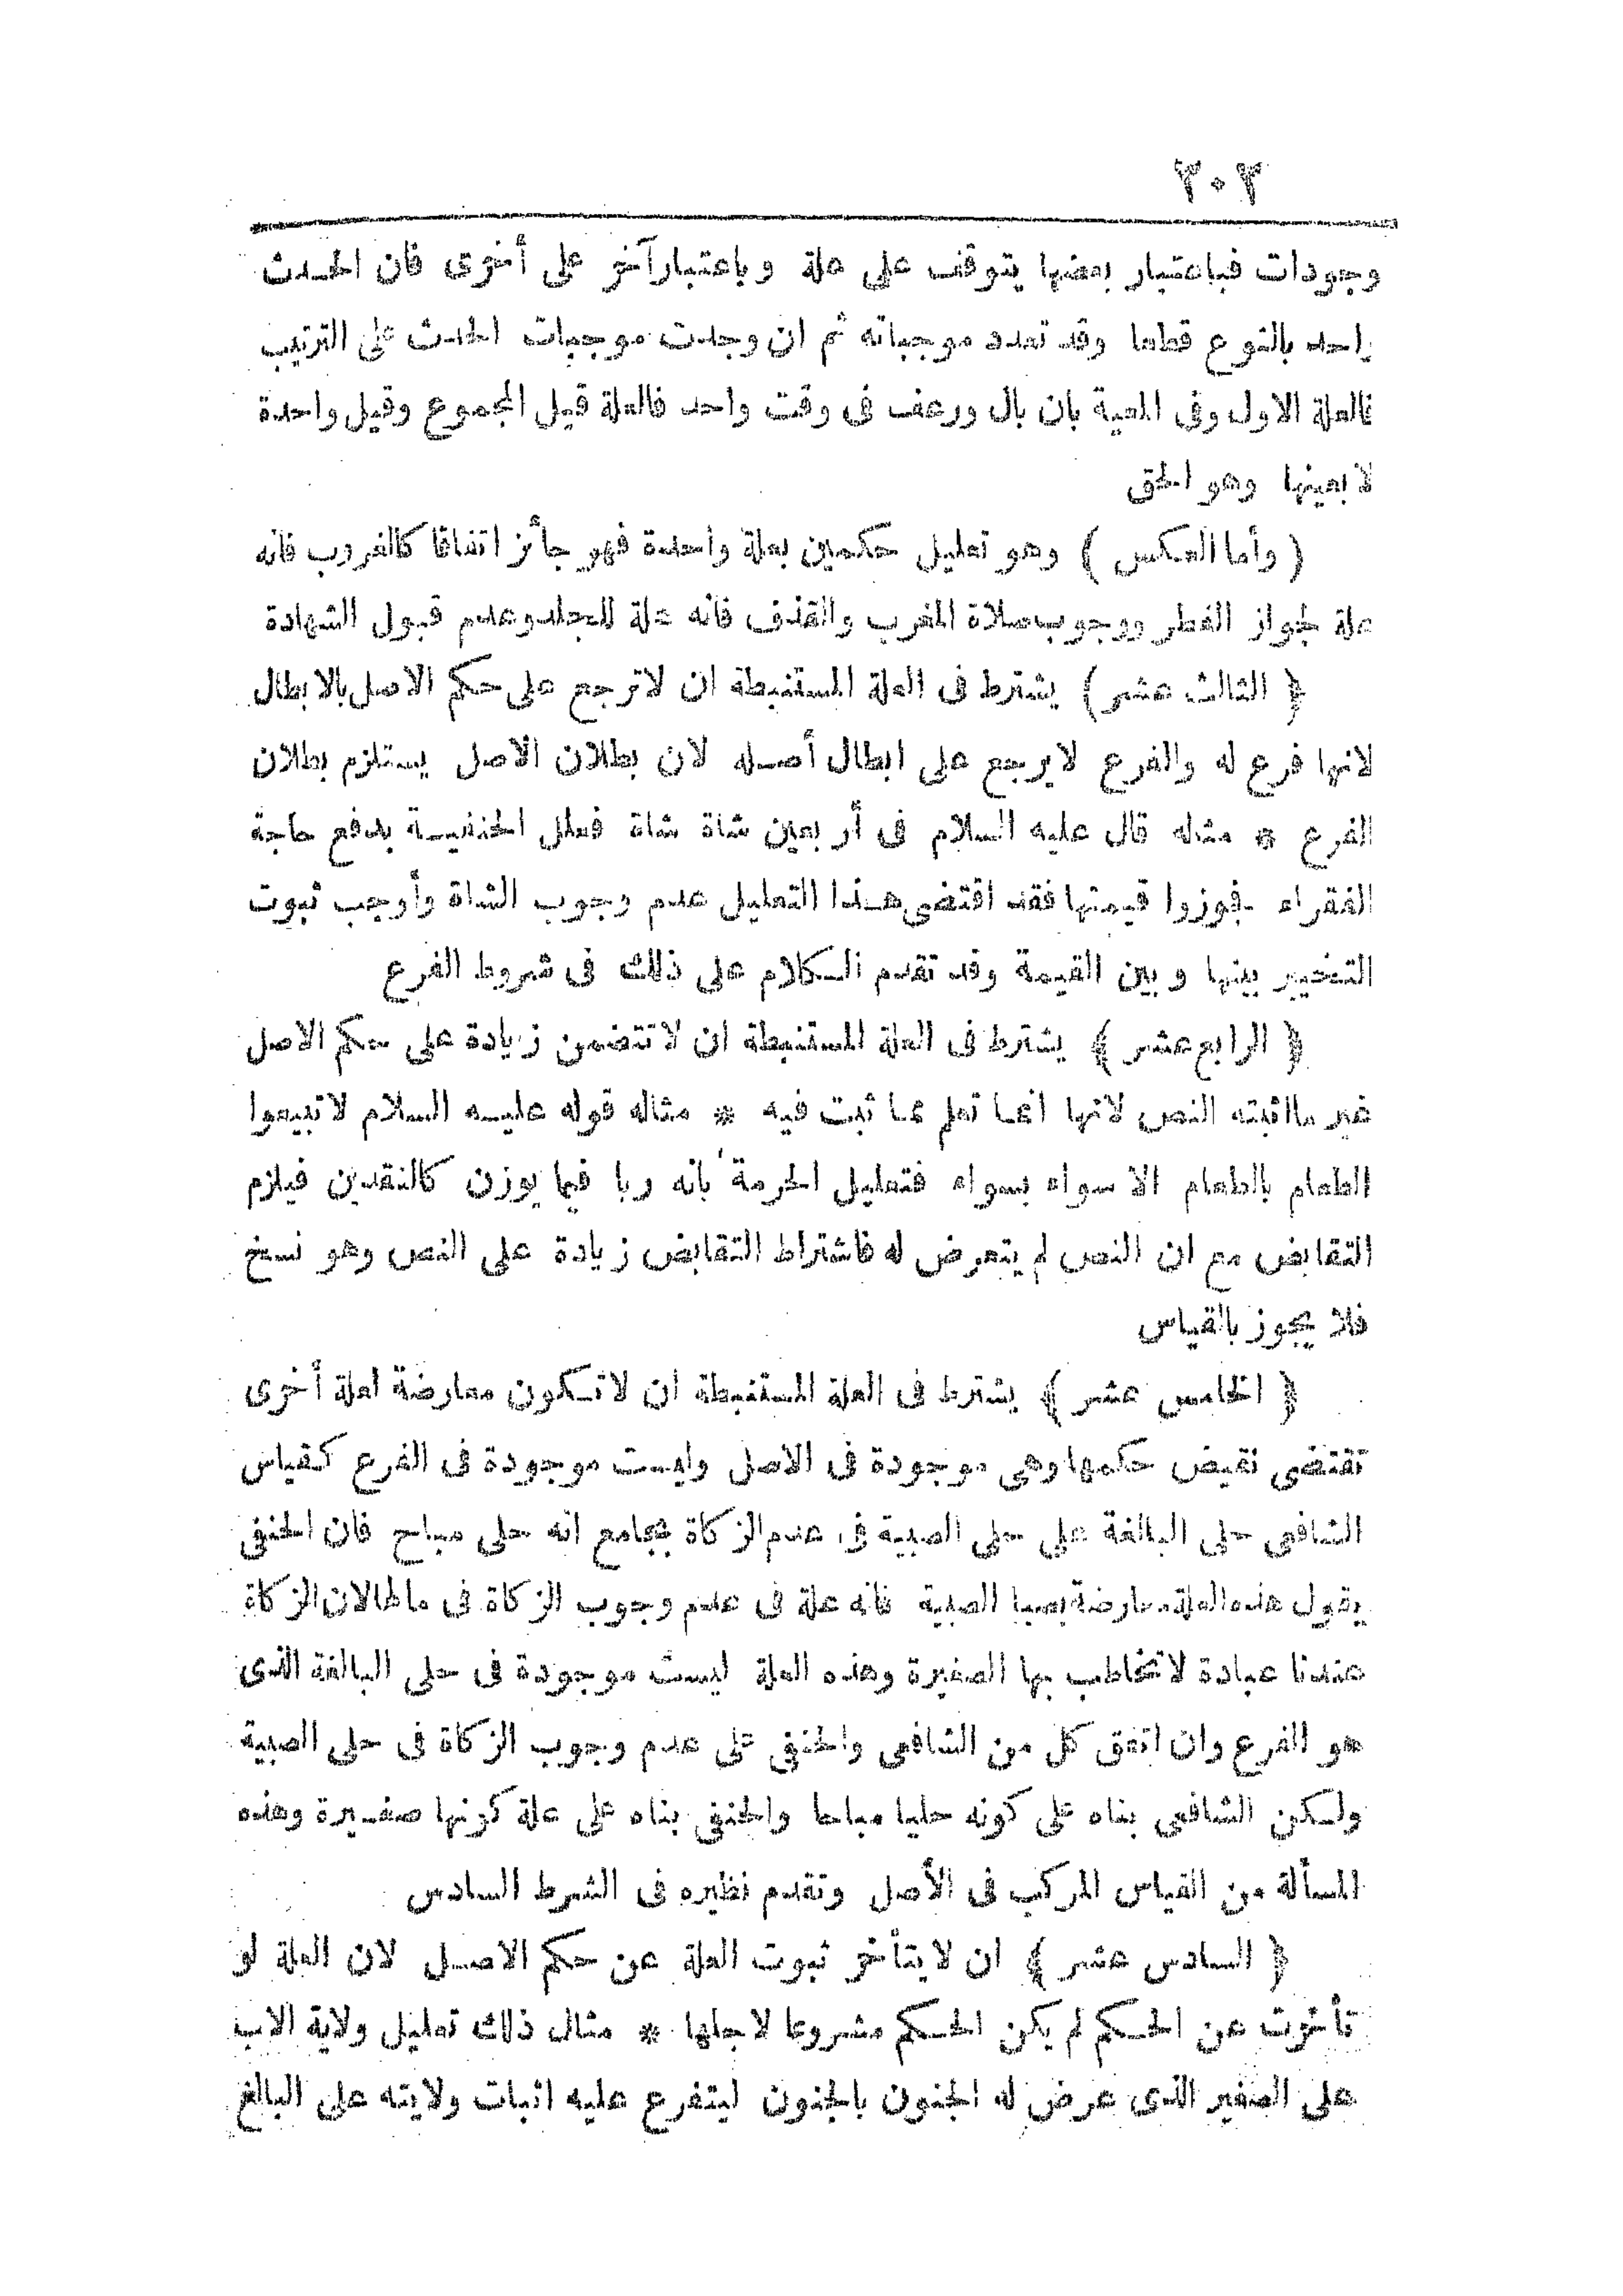 ٣٠٣
وجودات فباعتبار بعضها يتوقف على علة وباعتبار آخر على أخرى فان الحدث
واحد بالنوع قطعا وقد تعدد موجباته ثم ان وجدت موجبات الحدث على الترتيب
فالعلة الاول وفى المعية بان بال ورعف فى وقت واحد فالعلة قيل المجموع وقيل واحدة
لا بعينها وهو الحق
( وأما العكس ) وهو تعليل حكمين بعلة واحدة فهو جائز اتفاقا كالغروب فانه
علة لجواز الفطر ووجوب صلاة المغرب والقذف فانه علة للجلد وعدم قبول الشهادة
﴿ الثالث عشر ﴾ يشترط فى العلة المستنبطة ان لا ترجع على حكم الاصل بالابطال
لانها فرع له والفرع لا يرجع على ابطال أصله لان بطلان الاصل يستلزم بطلان
الفرع * مثله قال عليه السلام فى أربعين شاة شاة فعلل الحنفية بدفع حاجة
الفقراء فجوزوا قيمتها فقد اقتضى هذا التعليل عدم وجوب الشاة وأوجب ثبوت
التخيير بينها وبين القيمة وقد تقدم الكلام على ذلك فى شروط الفرع
﴿ الرابع عشر ﴾ يشترط فى العلة المستنبطة ان لا تتضمن زيادة على حكم الاصل
غير ما اثبته النص لانها انما تعلم مما ثبت فيه * مثاله قوله عليه السلام لا تبيعوا
الطعام بالطعام الا سواء بسواء فتعليل الحرمة بانه ربا فيما يوزن كالنقدين فيلزم
التقابض مع ان النص لم يتعرض له فاشتراط التقابض زيادة على النص وهو نسخ
فلا يجوز بالقياس
﴿ الخامس عشر ﴾ يشترط فى العلة المستنبطة ان لا تكون معارضة لعلة أخرى
تقتضى نقيض حكمها وهى موجودة فى الاصل وليست موجودة فى الفرع كقياس
الشافعى حلى البالغة على حلى الصبية فى عدم الزكاة بجامع انه حلى مباح فان الحنفى
يقول هذه العلة معارضة بصبا الصبية فانه علة فى عدم وجوب الزكاة فى مالها لان الزكاة
عندنا عبادة لا تخاطب بها الصغيرة وهذه العلة ليست موجودة فى حلى البالغة الذى
هو الفرع وان اتفق كل من الشافعى والحنفى على عدم وجوب الزكاة فى حلى الصبية
ولكن الشافعى بناه على كونه حليا مباحا والحنفى بناه على علة كونها صغيرة وهذه
المسألة من القياس المركب فى الأصل وتقدم نظيره فى الشرط السادس
﴿ السادس عشر ﴾ ان لا يتأخر ثبوت العلة عن حكم الاصل لان العلة لو
تأخرت عن الحكم لم يكن الحكم مشروعا لاجلها * مثال ذلك تعليل ولاية الاب
على الصغير الذى عرض له الجنون بالجنون ليتفرع عليه اثبات ولايته على البالغ